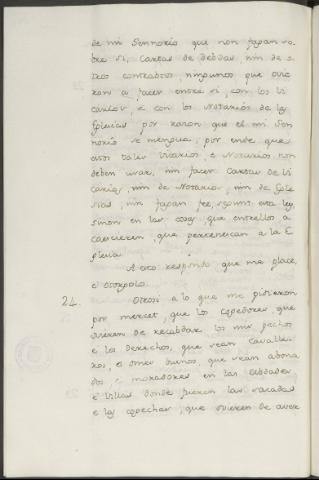 de mi Sennorio que non fagan so-
bre si, Cartas de debdas, nin de o-
tros contrabtos, ningunos que ovie-
ran a facer entre si, con los Vi-
carios, e con los Notarios de las
Eglesias por razon que el mi Sen-
norio se mengua, por ende que
estos tales Vicarios e Notarios non
deben usar, nin facer Cartas de Vi-
carias, nin de Notario, nin de Egle-
sias, nin fagan fee, segunt esta ley,
sinon en las cosas que entrellos a-
caescieren, que pertenescan a la E-
glesia.
A esto respondo que me place,
e otorgolo.
24. Otrosi a lo que me pidieron
por mercet, que los cojedores que
ovieren de recabdar los mis pechos
e los derechos, que sean Cavalle-
ros, e omes buenos, que sean abona-
dos, e moradores en las Cibdades
e Villas donde fueren las sacadas
e las cojechas, que ovieren de aver